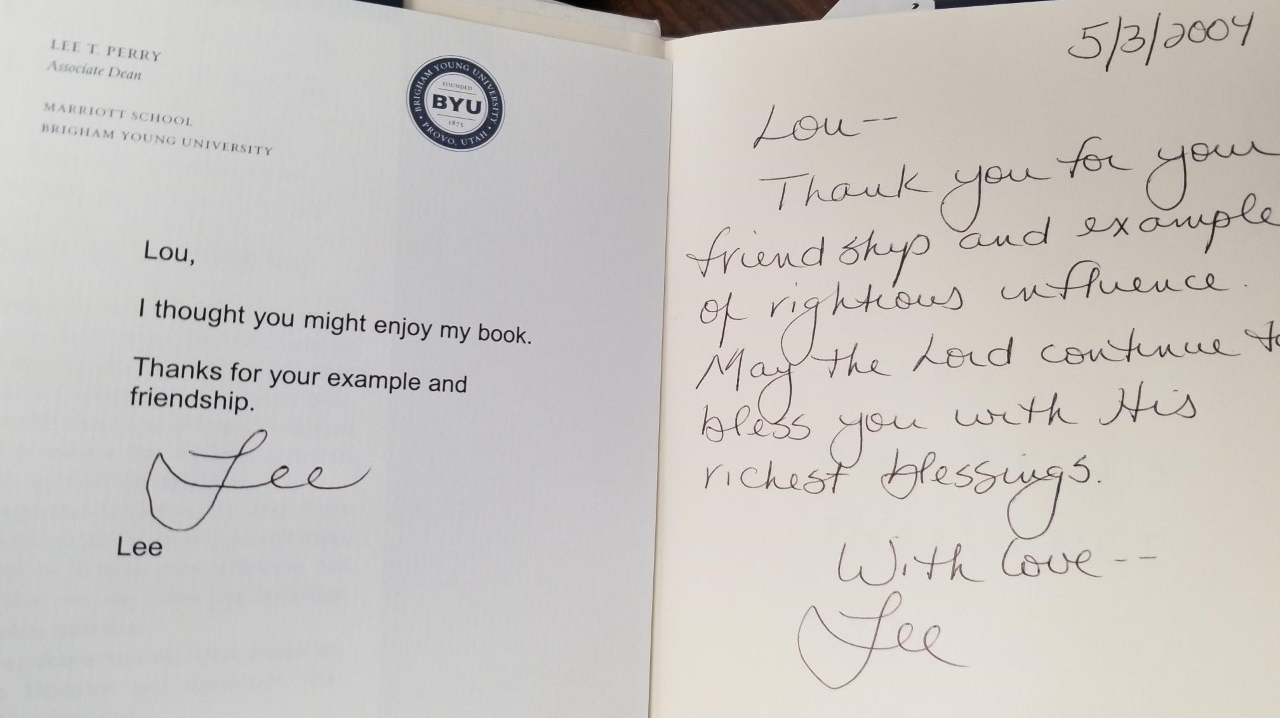 LEE T. PERRY
Associate Dean
MARRIOTT SCHOOL
BRIGHAM YOUNG UNIVERSITY
BRIGHAM YOUNG UNIVERSITY
FOUNDED
BYU
1875
PROVO, UTAH
Lou,
I thought you might enjoy my book.
Thanks for your example and
friendship.
Lee
Lee
5/3/2004
Lou--
Thank you for your
friendship and example
of rightious influence.
May the Lord continue to
bless you with His
richest blessings.
With love--
Lee